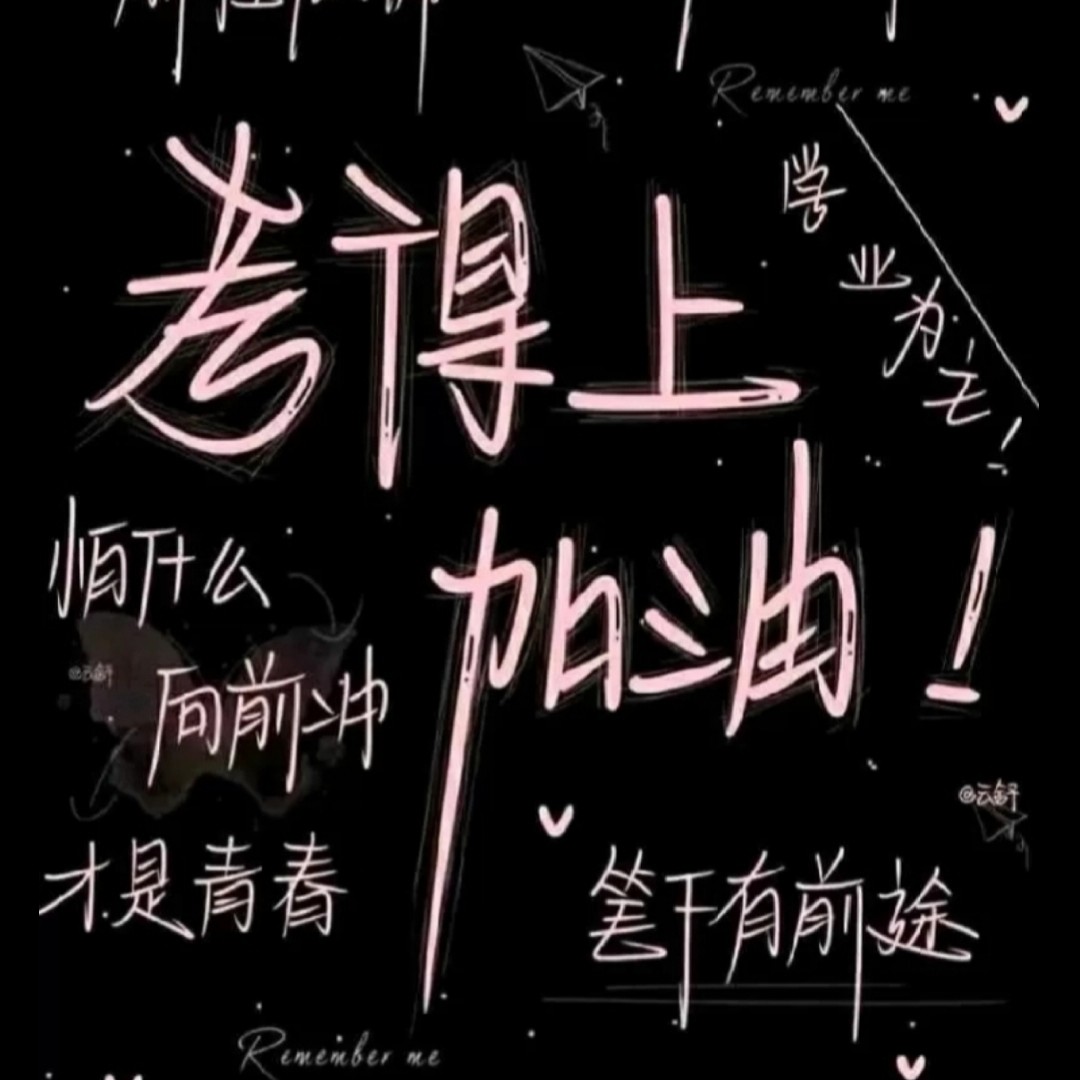 Remember me
考得上
学业为主!
加油!
怕什么
@云舒
向前冲
@云舒
才是青春
笔下有前途
Remember me